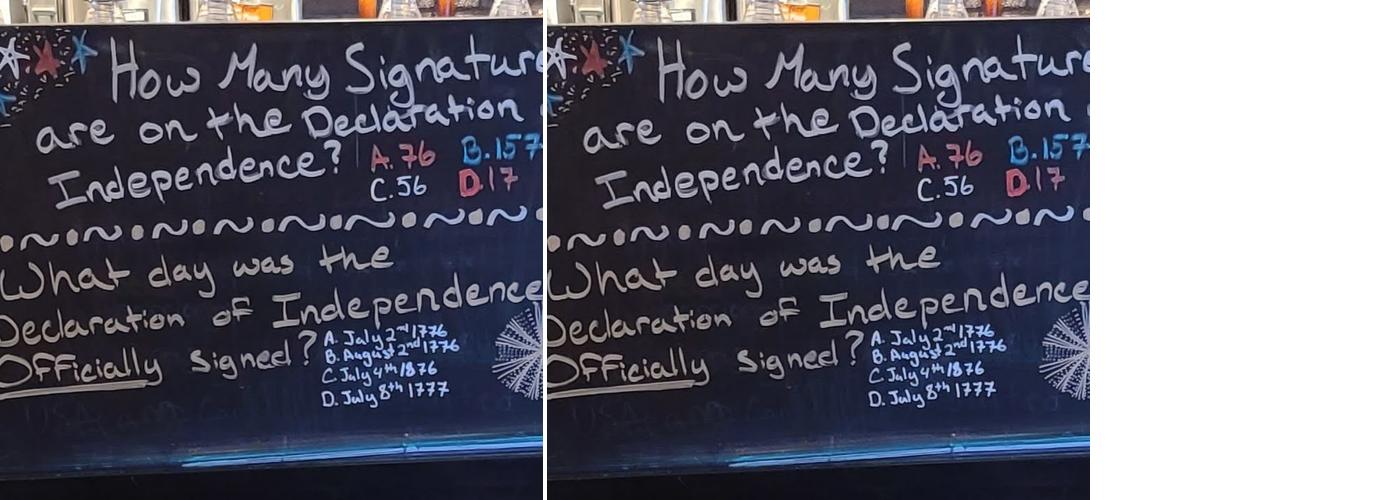 How Many Signature
are on the Declaration
Independence? A. 76 B. 157
C. 56 D. 17
What day was the
Declaration of Independence
Officially signed?
A. July 2nd 1776
B. August 2nd 1776
C. July 4th 1876
D. July 8th 1777
How Many Signature
are on the Declaration
Independence? A. 76 B. 157
C. 56 D. 17
What day was the
Declaration of Independence
Officially signed?
A. July 2nd 1776
B. August 2nd 1776
C. July 4th 1876
D. July 8th 1777